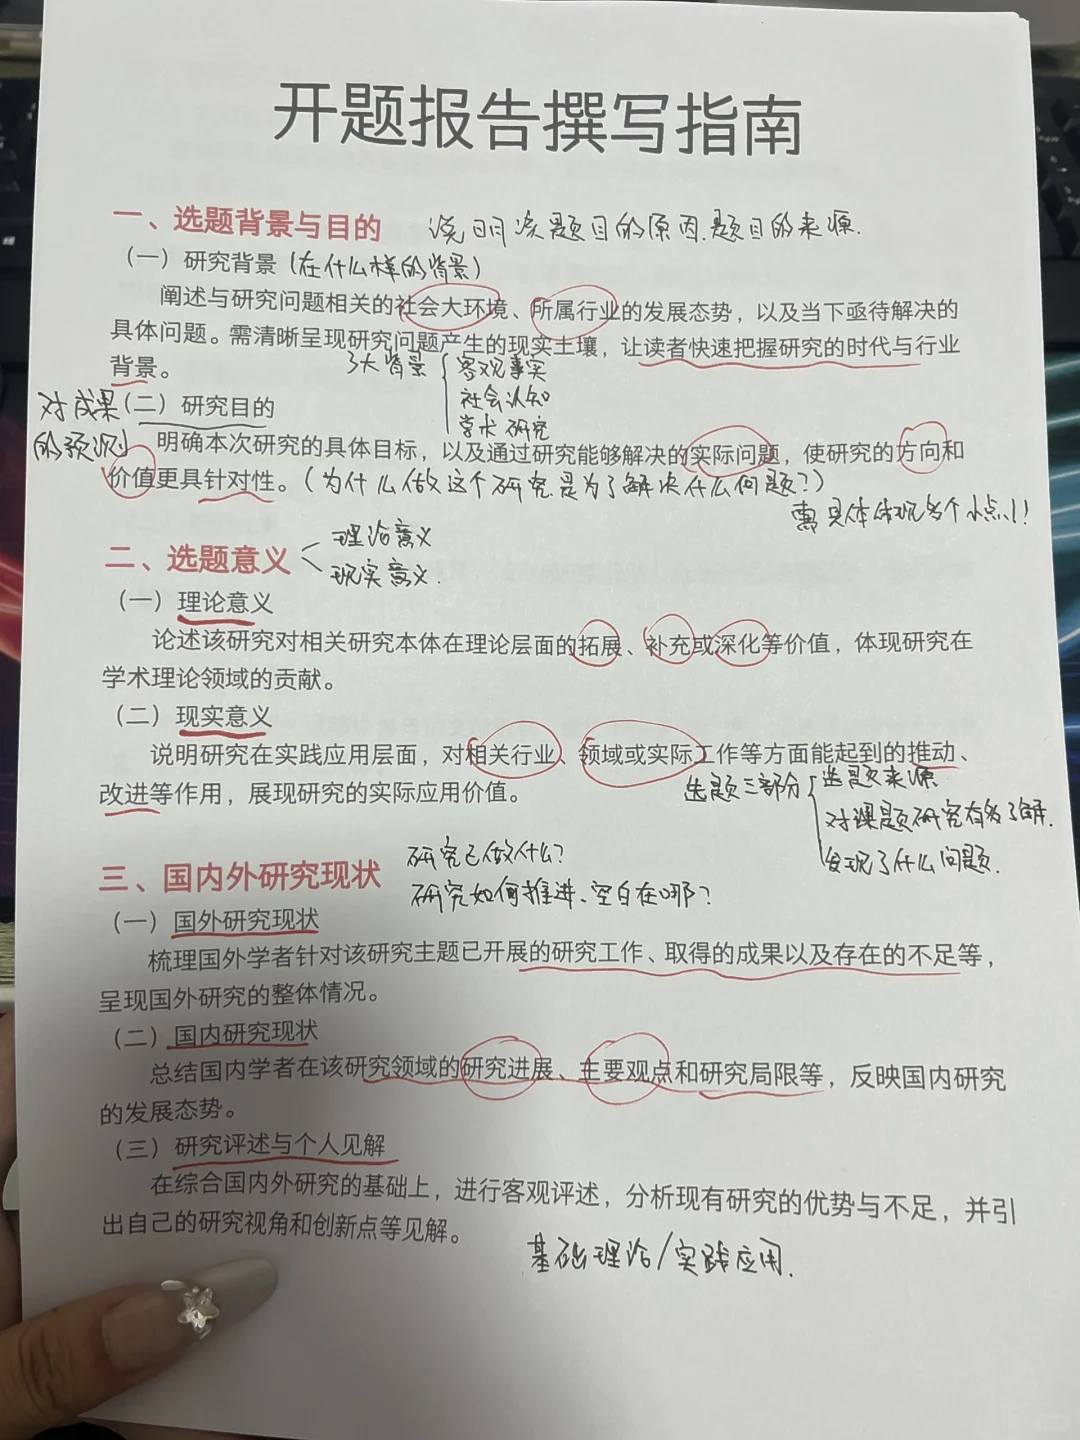 开题报告撰写指南
一、选题背景与目的 说明该题目的原因.题目的来源.
（一）研究背景（在什么样的背景）
阐述与研究问题相关的社会大环境、所属行业的发展态势，以及当下亟待解决的
具体问题。需清晰呈现研究问题产生的现实土壤，让读者快速把握研究的时代与行业
背景。
3大背景 客观事实
社会认知
学术研究
对成果
的预测
（二）研究目的
明确本次研究的具体目标，以及通过研究能够解决的实际问题，使研究的方向和
价值更具针对性。（为什么做这个研究是为了解决什么问题？）
具体体现多个小点!!
二、选题意义 理论意义
现实意义.
（一）理论意义
论述该研究对相关研究本体在理论层面的拓展、补充或深化等价值，体现研究在
学术理论领域的贡献。
（二）现实意义
说明研究在实践应用层面，对相关行业、领域或实际工作等方面能起到的推动、
改进等作用，展现研究的实际应用价值。
选题三部分 选题来源
对课题研究有多了解.
发现了什么问题.
三、国内外研究现状 研究已做什么？
研究如何推进、空白在哪？
（一）国外研究现状
梳理国外学者针对该研究主题已开展的研究工作、取得的成果以及存在的不足等，
呈现国外研究的整体情况。
（二）国内研究现状
总结国内学者在该研究领域的研究进展、主要观点和研究局限等，反映国内研究
的发展态势。
（三）研究评述与个人见解
在综合国内外研究的基础上，进行客观评述，分析现有研究的优势与不足，并引
出自己的研究视角和创新点等见解。
基础理论/实践应用.